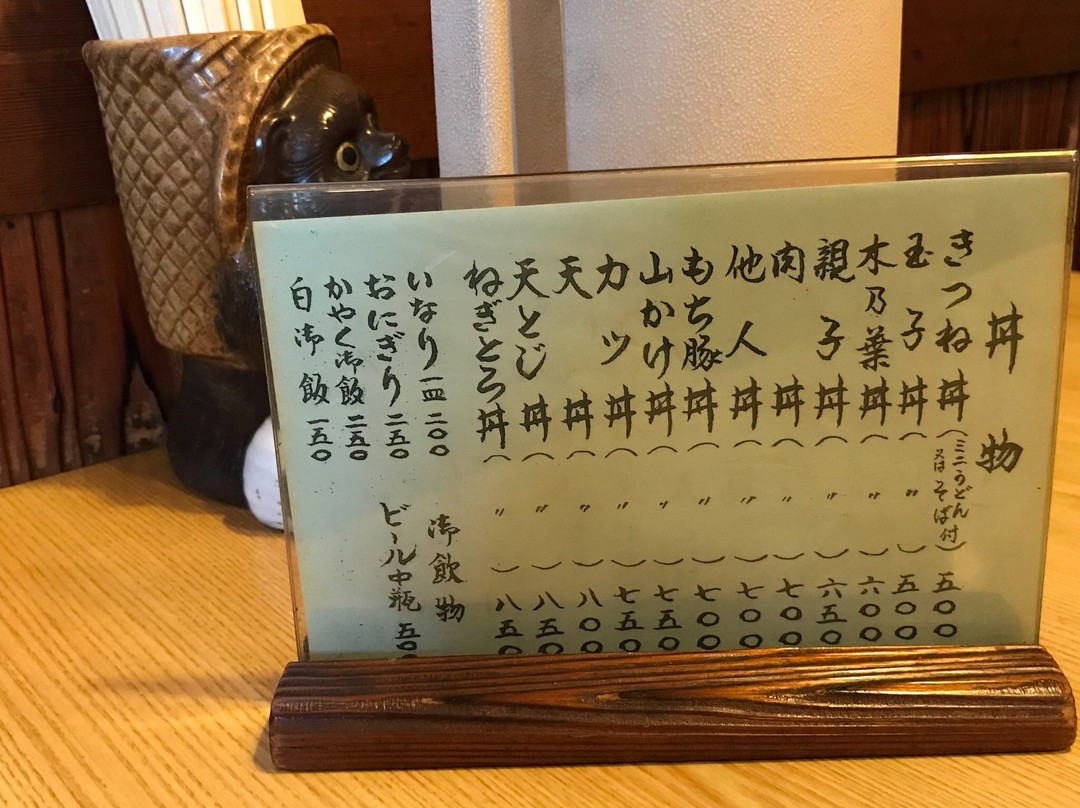 丼物
きつね丼(ミニうどん又はそば付)五〇〇
玉子丼(〃)五〇〇
木乃葉丼(〃)六〇〇
親子丼(〃)六五〇
肉丼(〃)七〇〇
他人丼(〃)七〇〇
もち豚丼(〃)七〇〇
山かけ丼(〃)七五〇
カツ丼(〃)七五〇
天丼(〃)八〇〇
天とじ丼(〃)八五〇
ねぎとろ丼(〃)八五〇
いなり一皿二〇〇
おにぎり二五〇
かやく御飯二五〇
白御飯一五〇
御飲物
ビール中瓶五〇〇